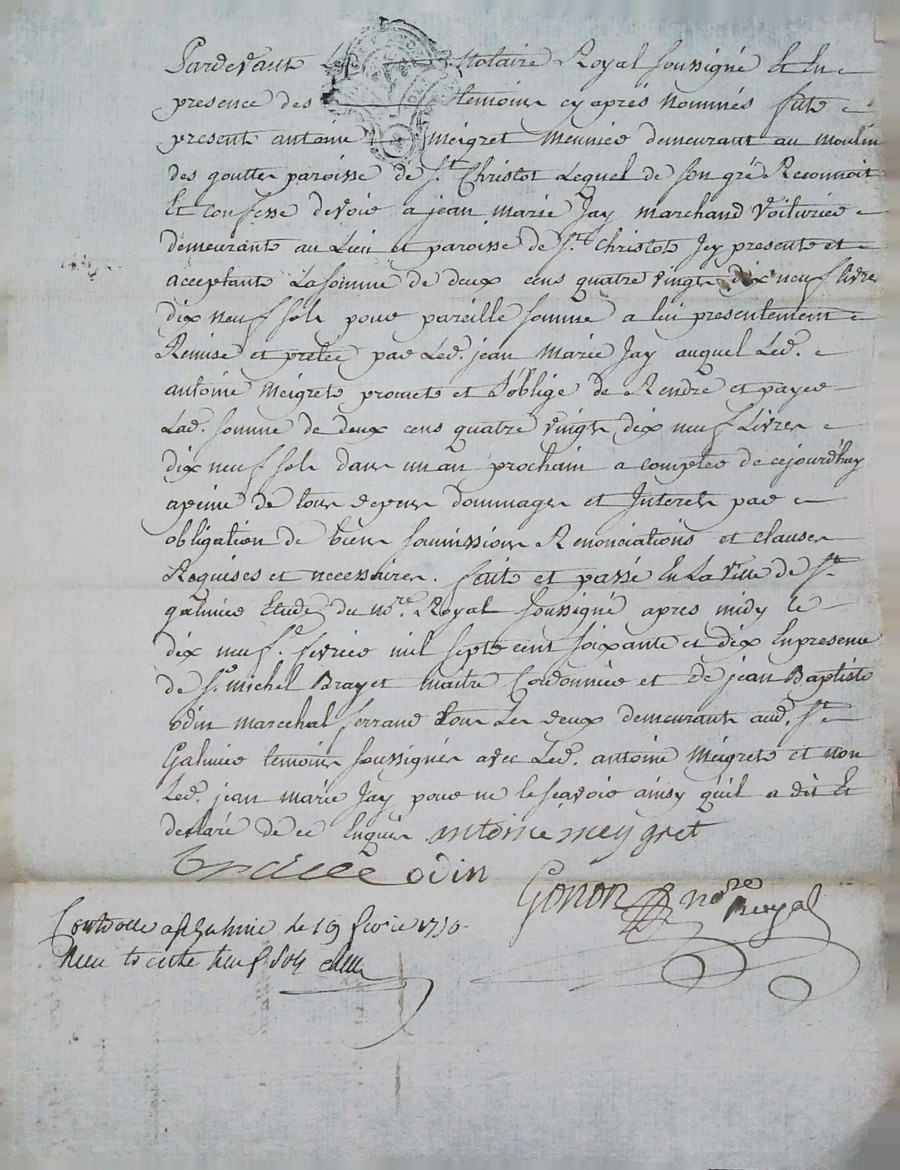 Pardevant Le Notaire Royal soussigné Et En
presence des temoins cy aprés nommés fûte
present antoine meigret meunier demeurant au moulin
des gouttes paroisse de St. Christot Lequel de son gré Reconnoit
Et confesse devoir a jean marie Jay marchand Voiturier
demeurant au Lieu et paroisse de St. Christot Jcy present et
acceptant La somme de deux cens quatre vingts dix neuf livres
dix neuf sols pour pareille somme a lui presentement
Remise et pretée par Led. jean Marie Jay auquel Led.
antoine Meigret promet et s'oblige de Rendre et payer
Lad. somme de deux cens quatre vingts dix neuf Livres
dix neuf sols dans un an prochain a compter de cejourd'huy
apeine de tous depens dommages et Interets par
obligation de biens soumissions Renonciations et clauses
Requises et necessaires. fait et passé En La Ville de St.
galmier Etude du nore. Royal soussigné apres midy le
dix neuf. fevrier mil sept cent soixante et dix En presence
de Sr. michel Brayet maitre Cordonnier et de jean Baptiste
odin marechal ferrand tous Les deux demeurant aud. St.
Galmier temoins soussignés avec Led. antoine Meigret et non
Led. jean marie Jay pour ne le scavoir ainsy qu'il a dit Et
declaré de ce Enquis antoine meygret
odin
Gonon nore Royal
Controlle a St Galmier le 19 fevrier 1770
Recu trente neuf sols